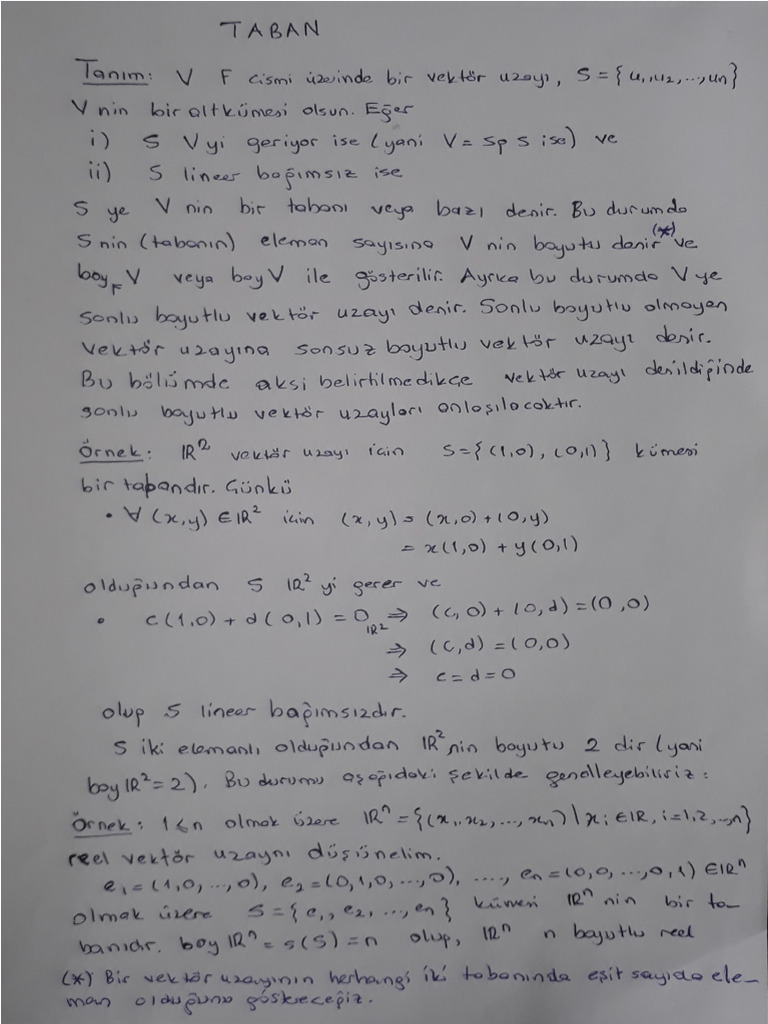 TABAN
Tanım: V F cismi üzerinde bir vektör uzayı, S = {u₁,u₂,...,uₙ}
V nin bir altkümesi olsun. Eğer
i) S V yi geriyor ise (yani V = sp S ise) ve
ii) S lineer bağımsız ise
S ye V nin bir tabanı veya bazı denir. Bu durumda
S nin (tabanın) eleman sayısına V nin boyutu denir(*) ve
boy_F V veya boy V ile gösterilir. Ayrıca bu durumda V ye
sonlu boyutlu vektör uzayı denir. Sonlu boyutlu olmayan
vektör uzayına sonsuz boyutlu vektör uzayı denir.
Bu bölümde aksi belirtilmedikçe vektör uzayı denildiğinde
sonlu boyutlu vektör uzayları anlaşılacaktır.
Örnek: ℝ² vektör uzayı için S={(1,0), (0,1)} kümesi
bir tabandır. Çünkü
• ∀ (x,y) ∈ ℝ² için (x,y) = (x,0) + (0,y)
= x(1,0) + y(0,1)
olduğundan S ℝ² yi gerer ve
• c(1,0) + d(0,1) = 0_ℝ² ⇒ (c,0) + (0,d) = (0,0)
⇒ (c,d) = (0,0)
⇒ c = d = 0
olup S lineer bağımsızdır.
S iki elemanlı olduğundan ℝ² nin boyutu 2 dir (yani
boy ℝ² = 2). Bu durumu aşağıdaki şekilde genelleyebiliriz:
Örnek: 1≤n olmak üzere ℝⁿ = {(x₁,x₂,...,xₙ) | xᵢ ∈ ℝ, i=1,2,...,n}
reel vektör uzaynı düşünelim.
e₁ = (1,0,...,0), e₂ = (0,1,0,...,0), ...., eₙ = (0,0,...,0,1) ∈ ℝⁿ
olmak üzere S = {e₁, e₂, ..., eₙ} kümesi ℝⁿ nin bir ta-
banıdır. boy ℝⁿ = s(S) = n olup, ℝⁿ n boyutlu reel
(*) Bir vektör uzayının herhangi iki tabanında eşit sayıda ele-
man olduğunu göstereceğiz.